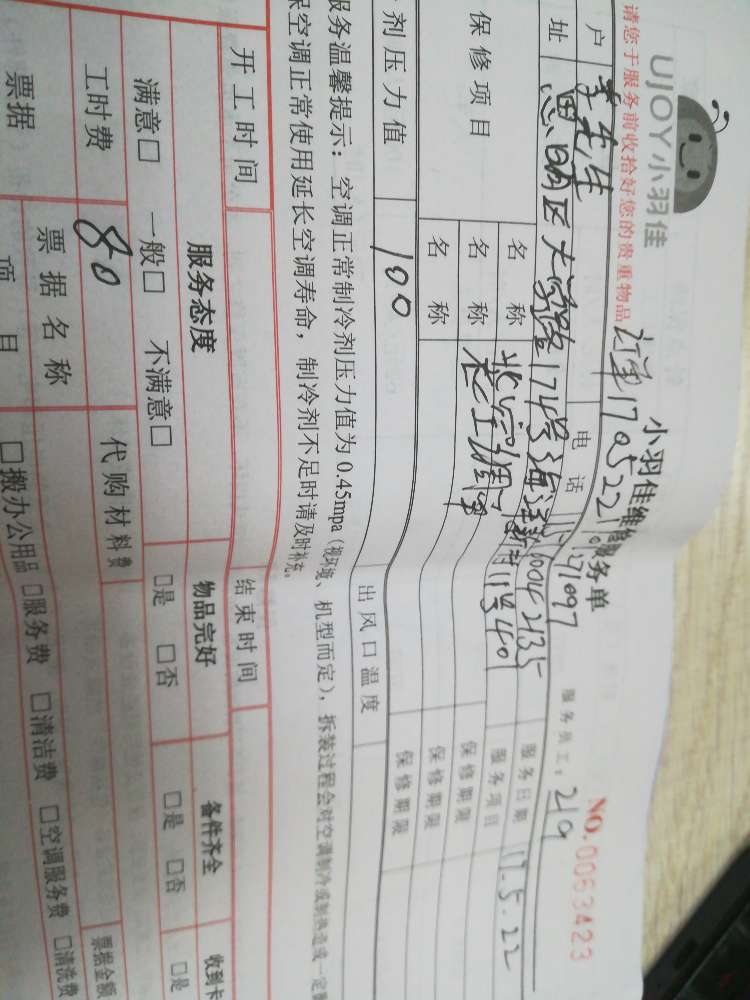 UJOY小羽佳
小羽佳维修服务单
NO.0063423
请您于服务前收拾好您的贵重物品
订单170522
服务员工：219
户 李先生
电话
服务日期 17.5.22
址 思明区大学路174号
11号401
服务项目
保修项目
名称
保修期限
名称
保修期限
名称
保修期限
剂压力值 100
出风口温度
服务温馨提示：空调正常制冷剂压力值为0.45mpa（视环境、机型而定），拆装过程会对空调制冷或制热造成一定
保空调正常使用延长空调寿命，制冷剂不足时请及时补充。
开工时间
结束时间
服务态度
物品完好
备件齐全
收到卡
满意□ 一般□ 不满意□
□是 □否
□是 □否
□是
工时费 80
代购材料费
票据金额
票据
票据名称
项目
□搬办公用品 □服务费 □清洁费 □空调服务费 □清洗费